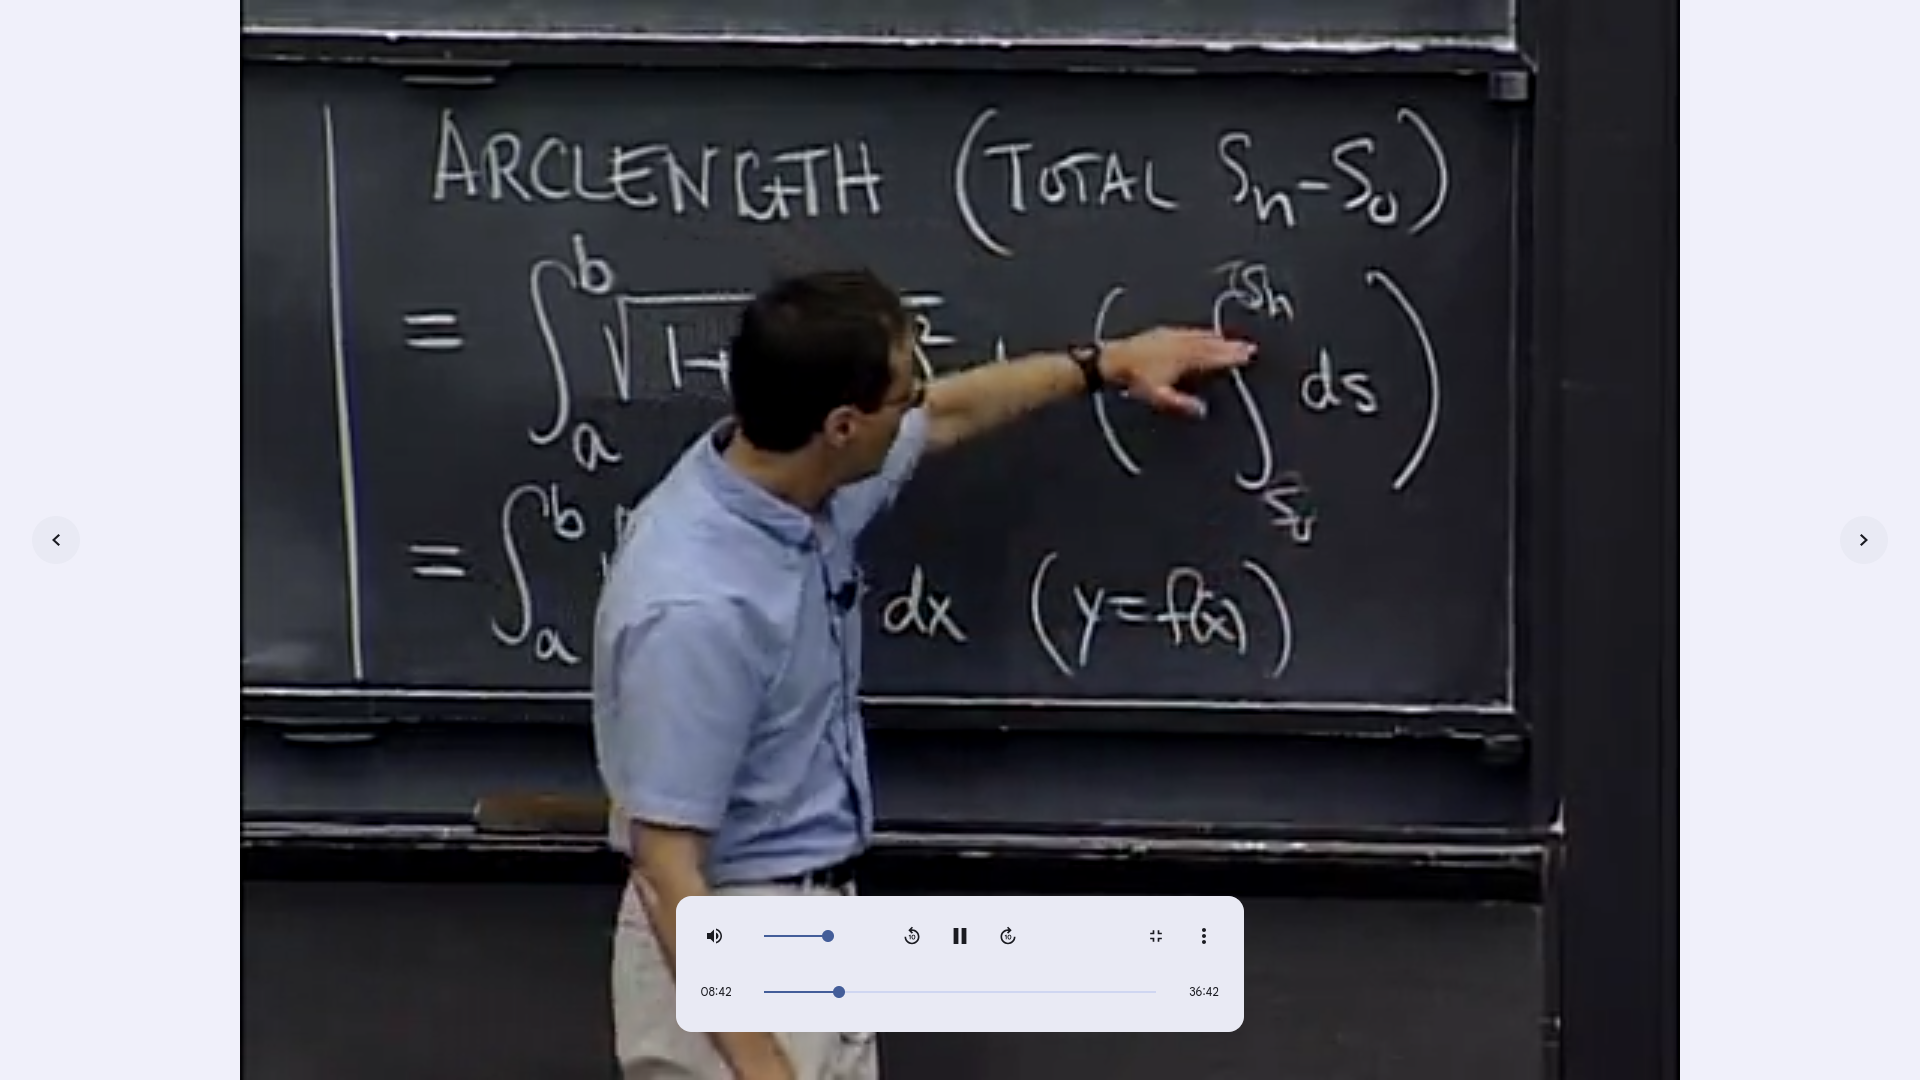 ARCLENGTH (TOTAL Sn-S0)
= ∫ab √1+ 2 (∫S0Sn ds)
= ∫ab dx (y=f(x))
08:42 36:42